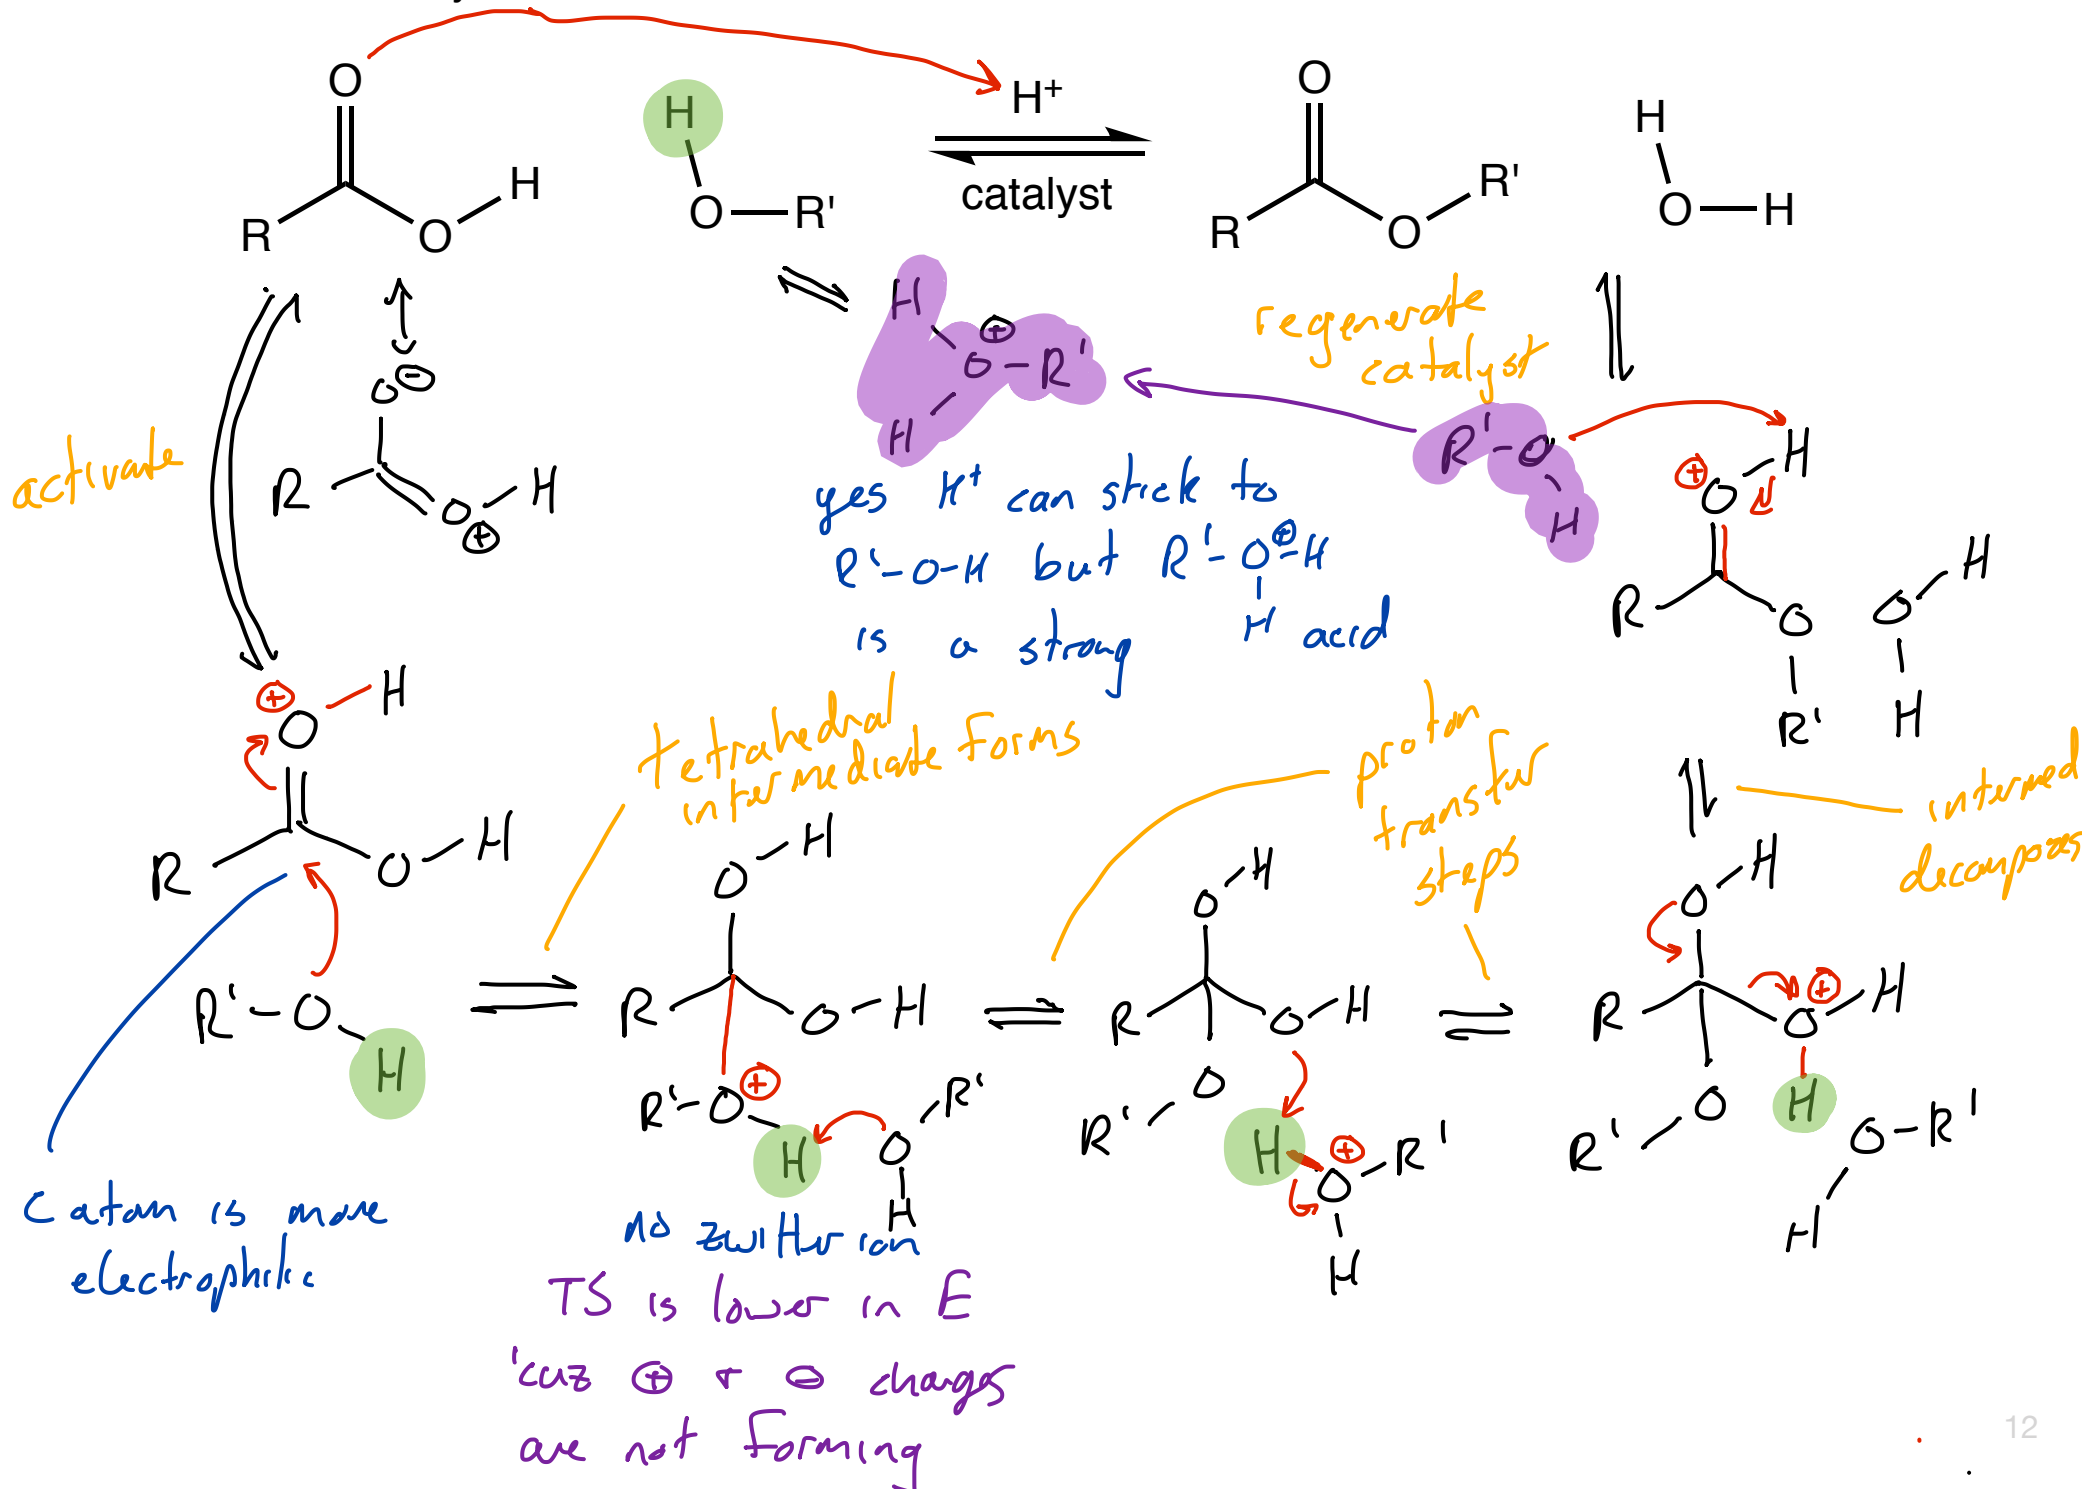 O
H
H⁺
O
H
R
O
H
O—R'
catalyst
R
O
R'
O—H
H
O⊕—R'
H
regenerate
catalyst
O⊖
R
O—H
⊕
activate
R'–O
H
⊕
O–H
yes H⁺ can stick to
R'–O–H but R'–O⊕–H
H
is a strong acid
R
O
R'
O
H
H
⊕
O
H
R
O–H
tetrahedral
intermediate forms
proton
transfer
steps
intermed
decomposes
R'–O
H
O–H
R
O–H
R'–O⊕
H
O
R'
H
O–H
R
O–H
O
R'
H
O⊕–R'
H
O–H
R
O⊕
H
H
O
R'
O–R'
H
C atom is more
electrophilic
no zwitterion
TS is lower in E
'cuz ⊕ + ⊖ charges
are not forming
12